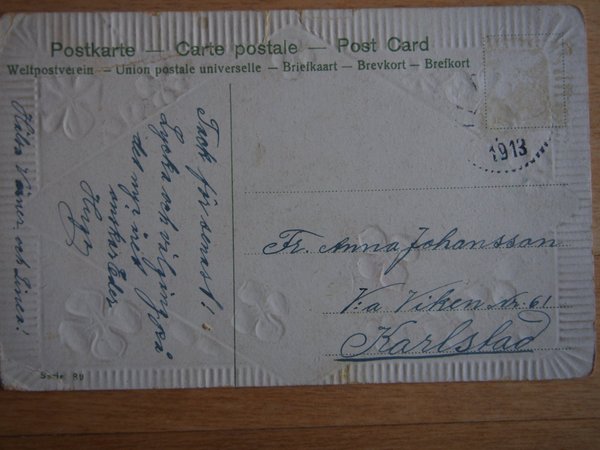 Postkarte — Carte postale — Post Card
Weltpostverein — Union postale universelle — Briefkaart — Brevkort — Brefkort
1913
Tack för senast!
Lycka och välgång på
det nya året
önskar Eder
Hugo
Hälsa Vänner och Linen!
Fr. Anna Johansson
V:a Viken Nr. 61
Karlstad
Serie 89